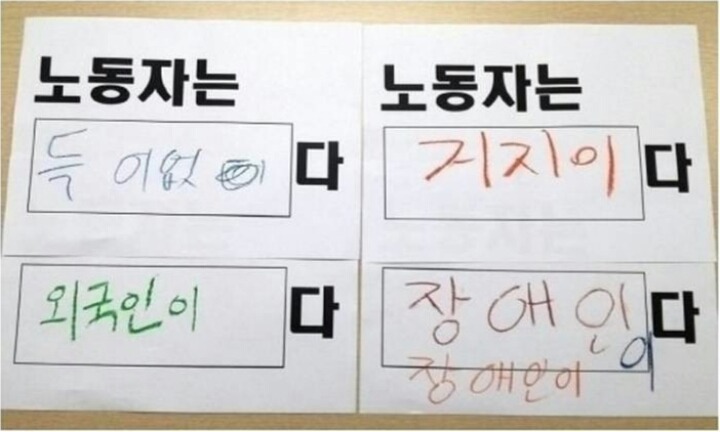 노동자는
득이없이다
노동자는
거지이다
외국인이다
장애인이다
장애인이